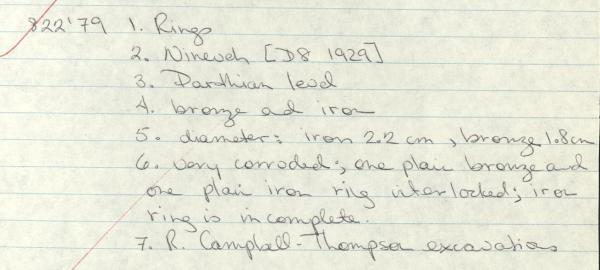 822'79 1. Rings
2. Nineveh [D8 1929]
3. Parthian level
4. bronze ad iron
5. diameter: iron 2.2 cm, bronze 1.8cm
6. very corroded; one plain bronze and
one plain iron ring interlocked; iron
ring is incomplete.
7. R. Campbell-Thompson excavations